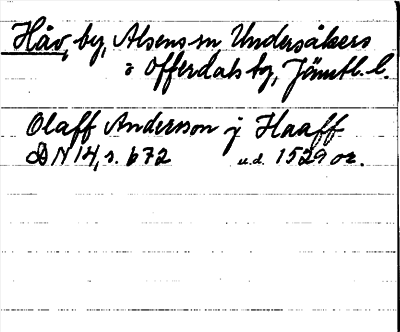 Håv, by, Alsens sn Undersåkers
o Offerdals tg, Jämtl. l.
Olaff Andersson j Haaff
DN 14, s. 672 u.d. 1529 or.